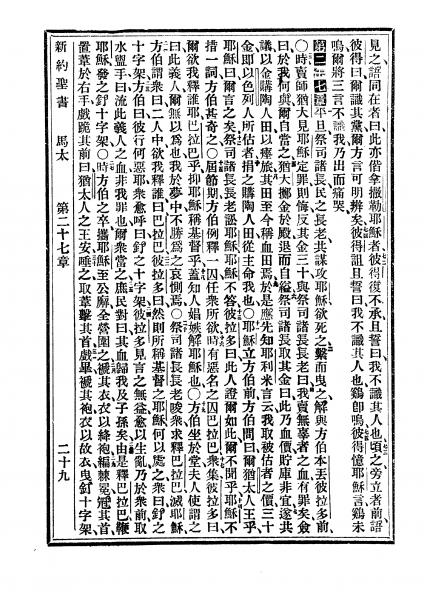 見之語同在者曰此亦偕拿撒勒耶穌者彼得復不承且誓曰我不識其人也頃之旁立者前語
彼得曰爾誠其黨爾方言可明辨矣彼得詛且誓曰我不識其人也鷄卽鳴彼得憶耶穌言鷄未
鳴爾將三言不識我乃出而痛哭
第二十七章平旦祭司諸長民之長老共謀攻耶穌欲死之繫而曳之解與方伯本丟彼拉多前
○時賣師猶大見耶穌定罪則悔反其金三十與祭司諸長長老曰我賣無辜者之血有罪矣僉
曰於我何與爾自當之猶大擲金於殿退而自縊祭司諸長取其金曰此乃血價貯庫非宜遂共
議以金購陶人田以瘞旅其田至今稱血田焉於是應先知耶利米言云我取被估者之價三十
金卽以色列人所估者捐之購陶人田從主命我也○耶穌立方伯前方伯問曰爾猶太人王乎
耶穌曰爾言之矣祭司諸長長老訟耶穌耶穌不答彼拉多曰此人證爾如此爾不聞乎耶穌不
措一詞方伯甚奇之○屆節期方伯例釋一囚任衆所欲時有惡名之囚巴拉巴衆集彼拉多曰
爾欲我釋誰耶巴拉巴乎抑耶穌稱基督乎蓋知人娼嫉解耶穌也○方伯坐於堂夫人使謂之
曰此義人爾無以為也我於夢中不勝為之哀惻焉○祭司諸長長老唆衆求釋巴拉巴滅耶穌
方伯謂衆曰二人中欲我釋誰曰巴拉巴彼拉多曰然則所稱基督之耶穌何以處之衆曰釘之
十字架方伯曰彼行何惡耶衆愈呼曰釘之十字架彼拉多見言之無益愈以生亂乃於衆前取
水盥手曰流此義人之血非我罪也爾衆當之庶民對曰其血歸我及子孫矣由是釋巴拉巴鞭
耶穌發之釘十字架○時方伯之卒攜耶穌至公廨全營圍之褫其衣衣以絳袍編棘冕冠其首
置葦於右手戲跪其前曰猶太人之王安唾之取葦擊其首戲畢褫其袍衣以故衣曳釘十字架
新約聖書 馬太 第二十七章 二十九